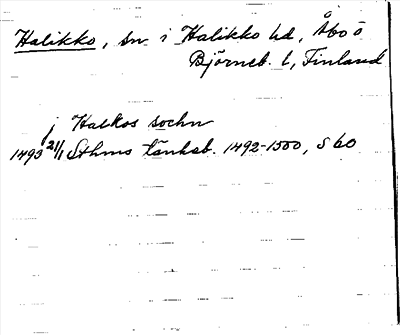 Halikko, sn i Halikko hd, Åbo o
Björneb. l, Finland
j Halkos sochn
1493 21/1 Sthms tänkeb. 1492-1500, s 60